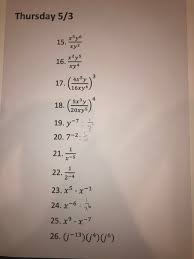 Thursday 5/3
15. x³y⁶/xy²
16. x²y⁵/xy⁴
17. (4x²y/16xy⁶)³
18. (5x³y/20xy⁵)⁴
19. y⁻⁷
20. 7⁻²
21. 1/x⁻⁵
22. 1/2⁻⁴
23. x⁵ · x⁻¹
24. x⁻⁶
25. x⁹ · x⁻⁷
26. (j⁻¹³)(j⁴)(j⁶)